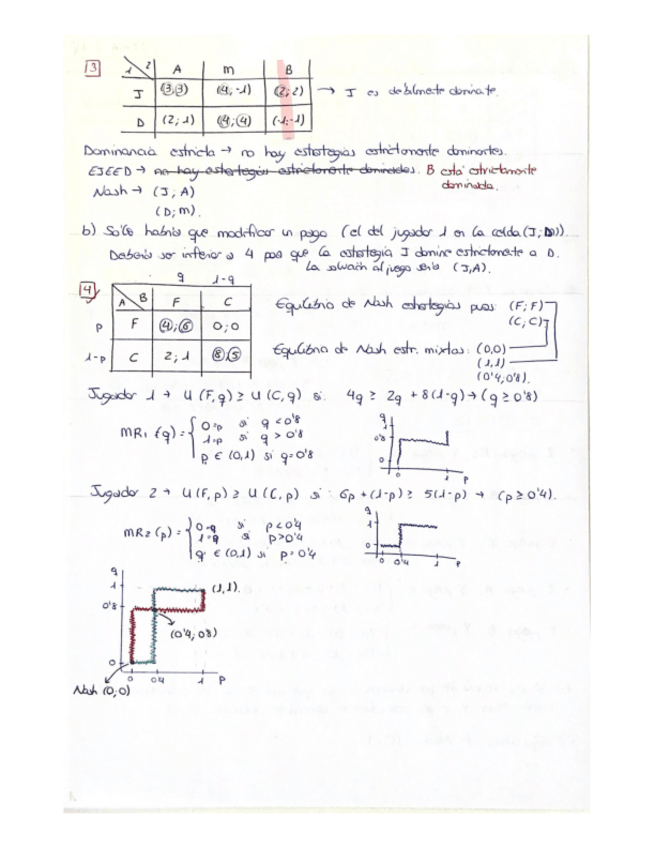 3
1 2 A M B
J (3;3) (4;-1) (2;2) → J es debilmente dominante.
D (2;1) (4;4) (-1;-1)
Dominancia estricta → no hay estrategias estrictamente dominantes.
EJEED → no hay estrategias estrictamente dominadas. B está estrictamente
dominada.
Nash → (J; A)
(D; m).
b) Solo habría que modificar un pago (el del jugador 1 en la celda (J; D)).
Debería ser inferior a 4 para que la estrategia J domine estrictamente a D.
La solución al juego sería (J,A).
4
q 1-q
A B F C
P F 4;6 0;0
1-p C 2;1 8;5
Equilibrio de Nash estrategias puras: (F;F)
(C,C)
Equilibrio de Nash estr. mixtas: (0,0)
(1,1)
(0'4,0'8).
Jugador 1 → U(F,q) ≥ U(C,q) si. 4q ≥ 2q + 8(1-q) → (q ≥ 0'8)
MR1 (q) = 0=p si q < 0'8
1=p si q > 0'8
p ∈ (0,1) si q=0'8
q 1 0'8 0 0 1 p
Jugador 2 → U(F,p) ≥ U(C,p) si: 6p + (1-p) ≥ 5(1-p) → (p ≥ 0'4).
MR2 (p) = 0=q si p < 0'4
1=q si p > 0'4
q ∈ (0,1) si p = 0'4
q 1 0 0 0'4 1 p
q
1 (1,1).
0'8
(0'4; 0'8)
0
0 0'4 1 p
Nash (0;0)